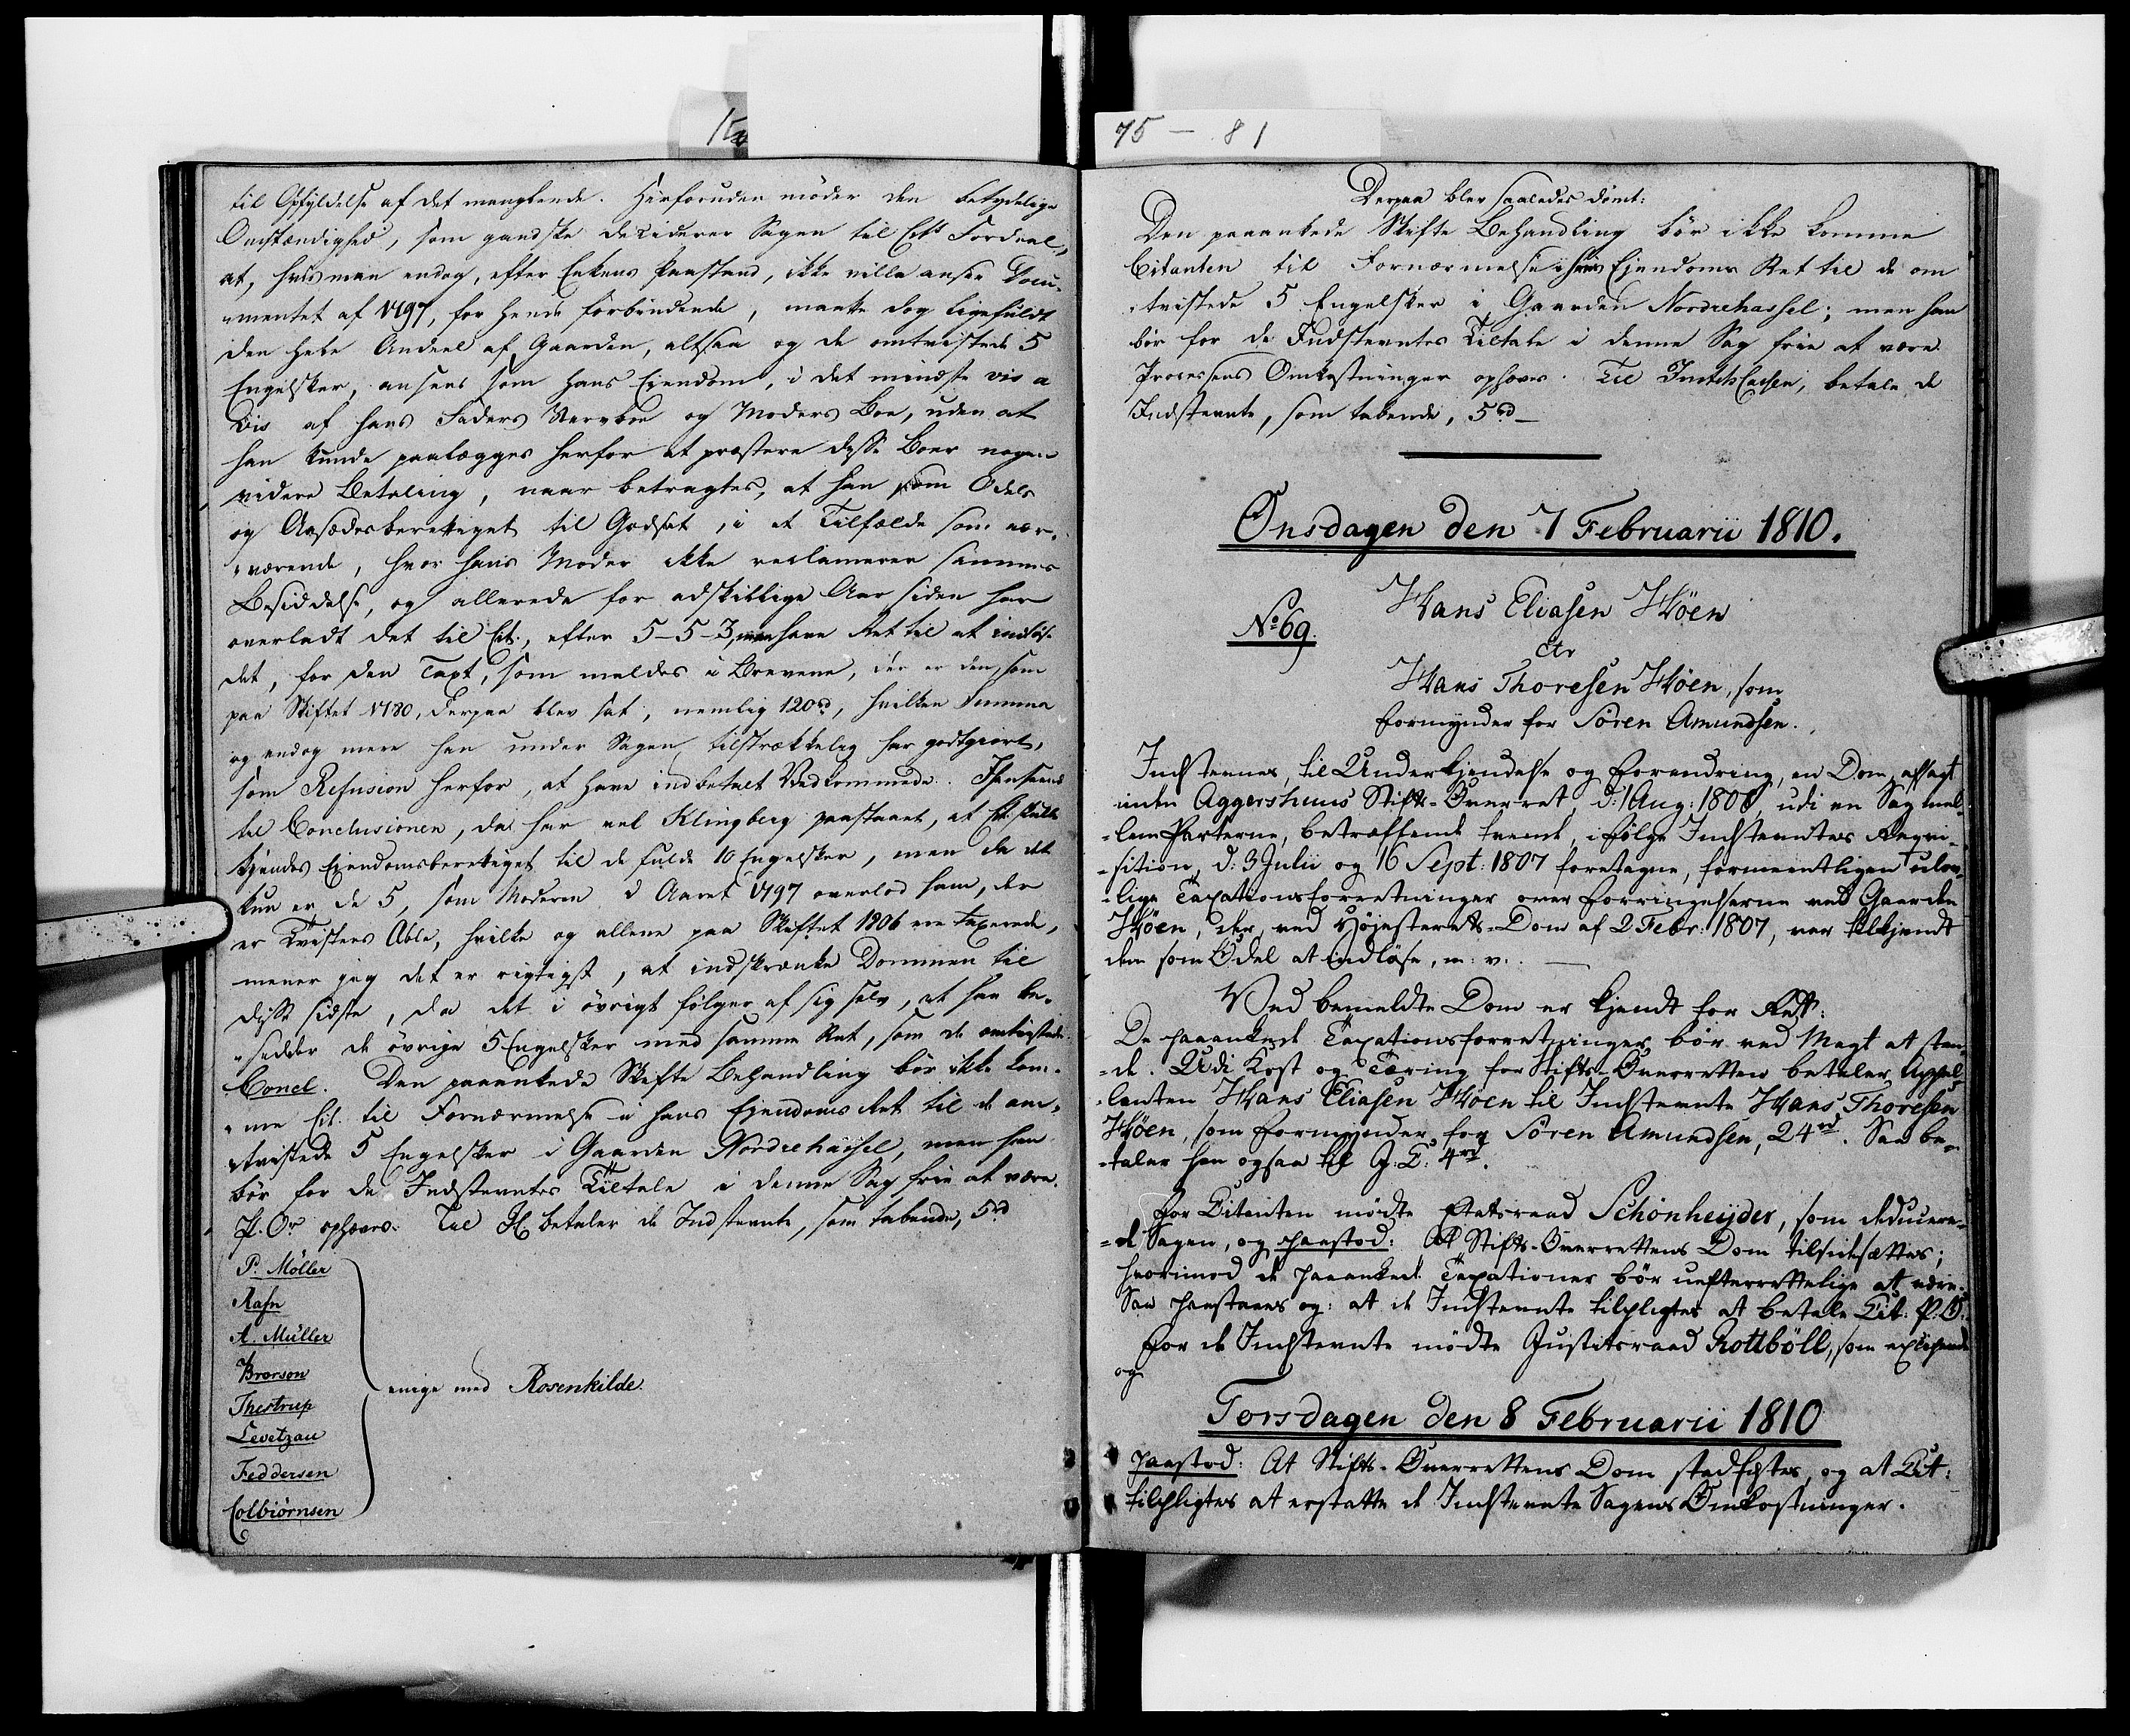 75 – 81
til Opfyldelse af det manglende. Herforuden møder den betydelige
Omstændighed, som gandske deciderer Sagen til Cits Fordeel,
at, hvis man endog, efter Enkens Paastand, ikke ville ansee Docu-
„mentet af 1797, for hende forbindende, maatte dog ligefuldt
den hele Andeel af Gaarden, altsaa og de omtvistede 5
Engelsker, ansees som hans Eiendom, i det mindste vis a
vis af hans Faders Stervboe og Moders Boe, uden at
han kunde paalægges herfor at præstere disse Boer nogen
videre Betaling, naar betragtes, at han som Odels
og Aasædesberettiget til Godset, i et Tilfælde som nær-
„værende, hvor hans Moder ikke reclamerer sammes
Besiddelse, og allerede for adskillige Aar siden har
overladt det til Cit., efter 5-5-3, maa have Ret til at indløse
det, for den Taxt, som meldes i Brevene, der er den, som
paa Skiftet 1780, derpaa blev sat, nemlig 120rd, hvilken Summa
og endog mere han under Sagen tilstrækkelig har godtgiort,
som Refusion herfor, at have indbetalt Vedkommende. Henseende
til Conclusionen, da har vel Klingberg paastaaet, at Cit. skulle
kjendes Eiendomsberettiget til de fulde 10 Engelsker, men da det
kun er de 5, som Moderen i Aaret 1797 overlod ham, der
er Tvistens Æble, hvilke og allene paa Skiftet 1806 ere taxerede,
mener jeg det er rigtigst, at indskrænke Dommen til
disse sidste, da det i øvrigt følger af sig selv, at han be-
„sidder de øvrige 5 Engelsker med samme Ret, som de omtvistede.
Concl. Den paaankede Skifte Behandling bør ikke kom-
„me Cit. til Fornærmelse i hans Ejendoms Ret til de om-
„tvistede 5 Engelsker i Gaarden Nordrehassel, men han
bør for de Indstevntes Tiltale i denne Sag frie at være.
P. Or ophæves. Til JC betaler de Indstevnte, som tabende, 5rd
P. Møller
Rafn
A. Müller
Brorson
Thestrup
Levetzau
Feddersen
Colbiørnsen
enige med Rosenkilde.
Derpaa blev saaledes dømt:
Den paaankede Skifte Behandling bør ikke komme
Citanten til Fornærmelse i hans Ejendoms Ret til de om
„tvistede 5 Engelsker i Gaarden Nordrehassel; men han
bør for de Indstevntes Tiltale i denne Sag frie at være.
Processens Omkostninger ophæves. Til JustitsCassen, betale de
Indstevnte, som tabende, 5rd –
Onsdagen den 7 Februarii 1810.
No 69.
Hans Eliasen Høen
Ctr
Hans Thoresen Høen, som
Formynder for Søren Amundsen.
Indstevnes, til Underkjendelse og Forandring, en Dom, afsagt
inden Aggershuus Stifts-Overret, d: 1 Aug: 1808, udi en Sag mel-
-lem Parterne, betræffende tvende, i Følge Indstevntes Reqvi-
-sition, d: 3 Julii og 16 Sept: 1807 foretagne, formeentligen ulov-
-lige Taxationsforretninger over Forringelserne ved Gaarden
Høen, der, ved Højesterets-Dom af 2 Febr: 1807, var tilkjendt
dem som Odel at indløse, m: v:
Ved bemeldte Dom er kjendt for Ret:
De paaankede Taxationsforretninger bør ved Magt at stan-
-de. Udi Kost og Tæring for Stifts-Overretten betaler Appel-
-lanten Hans Eliasen Høen til Indstevnte Hans Thoresen
Høen, som Formynder for Søren Amundsen, 24rd. Saa be-
-taler han ogsaa til J: C: 4rd.
For Citanten mødte Etatsraad Schønheyder, som deducere-
-de Sagen, og paastod: At Stifts-Overrettens Dom tilsidesættes;
hvorimod de paaankede Taxationer bør uefterrettelige at være.
Saa paastaaes og: at de Indstevnte tilpligtes at betale Cit: P. O.
For de Indstevnte mødte Justitsraad Rottbøll, som
og
Torsdagen den 8 Februarii 1810
paastod: At Stifts-Overrettens Dom stadfæstes, og at Cit:
tilpligtes at erstatte de Indstevnte Sagens Omkostninger.